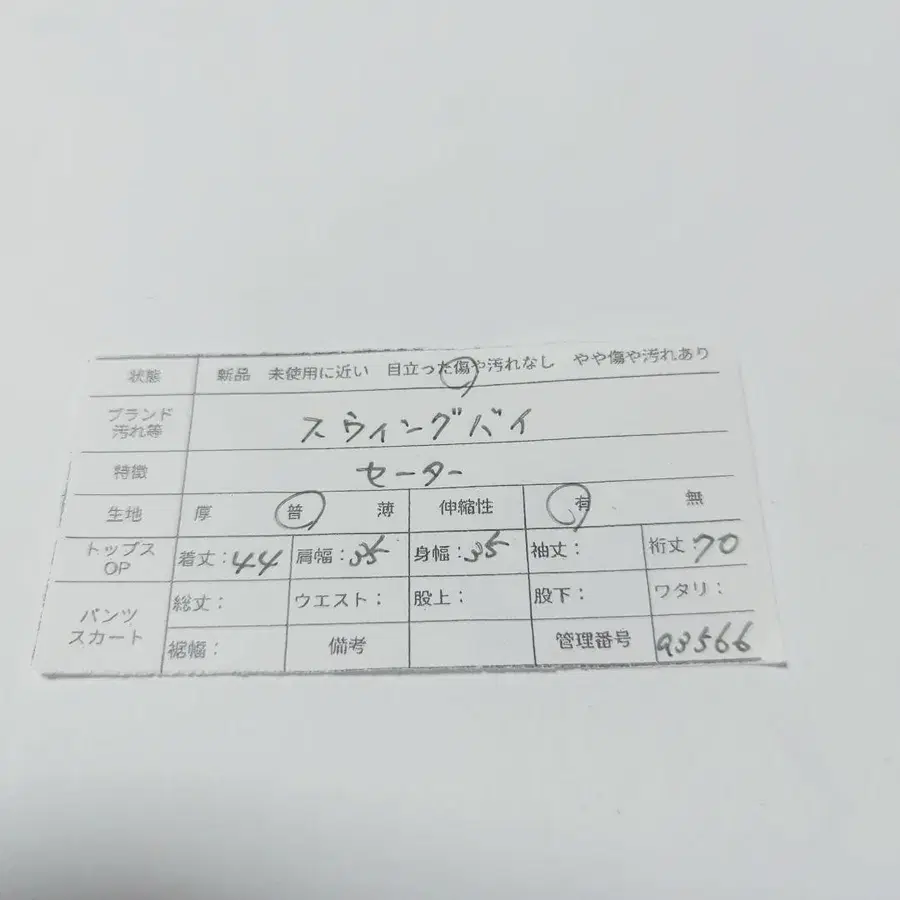 状態 新品 未使用に近い 目立った傷や汚れなし やや傷や汚れあり
ブランド
汚れ等 スウィングバイ
特徴 セーター
生地 厚 普 薄 伸縮性 有 無
トップス
OP 着丈:44 肩幅:35 身幅:35 袖丈: 裄丈:70
パンツ
スカート 総丈: ウエスト: 股上: 股下: ワタリ:
裾幅: 備考 管理番号 a3566